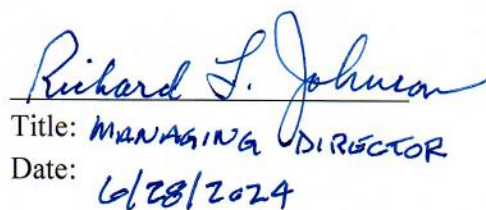 Richard L. Johnson
Title: MANAGING DIRECTOR
Date:
6/28/2024